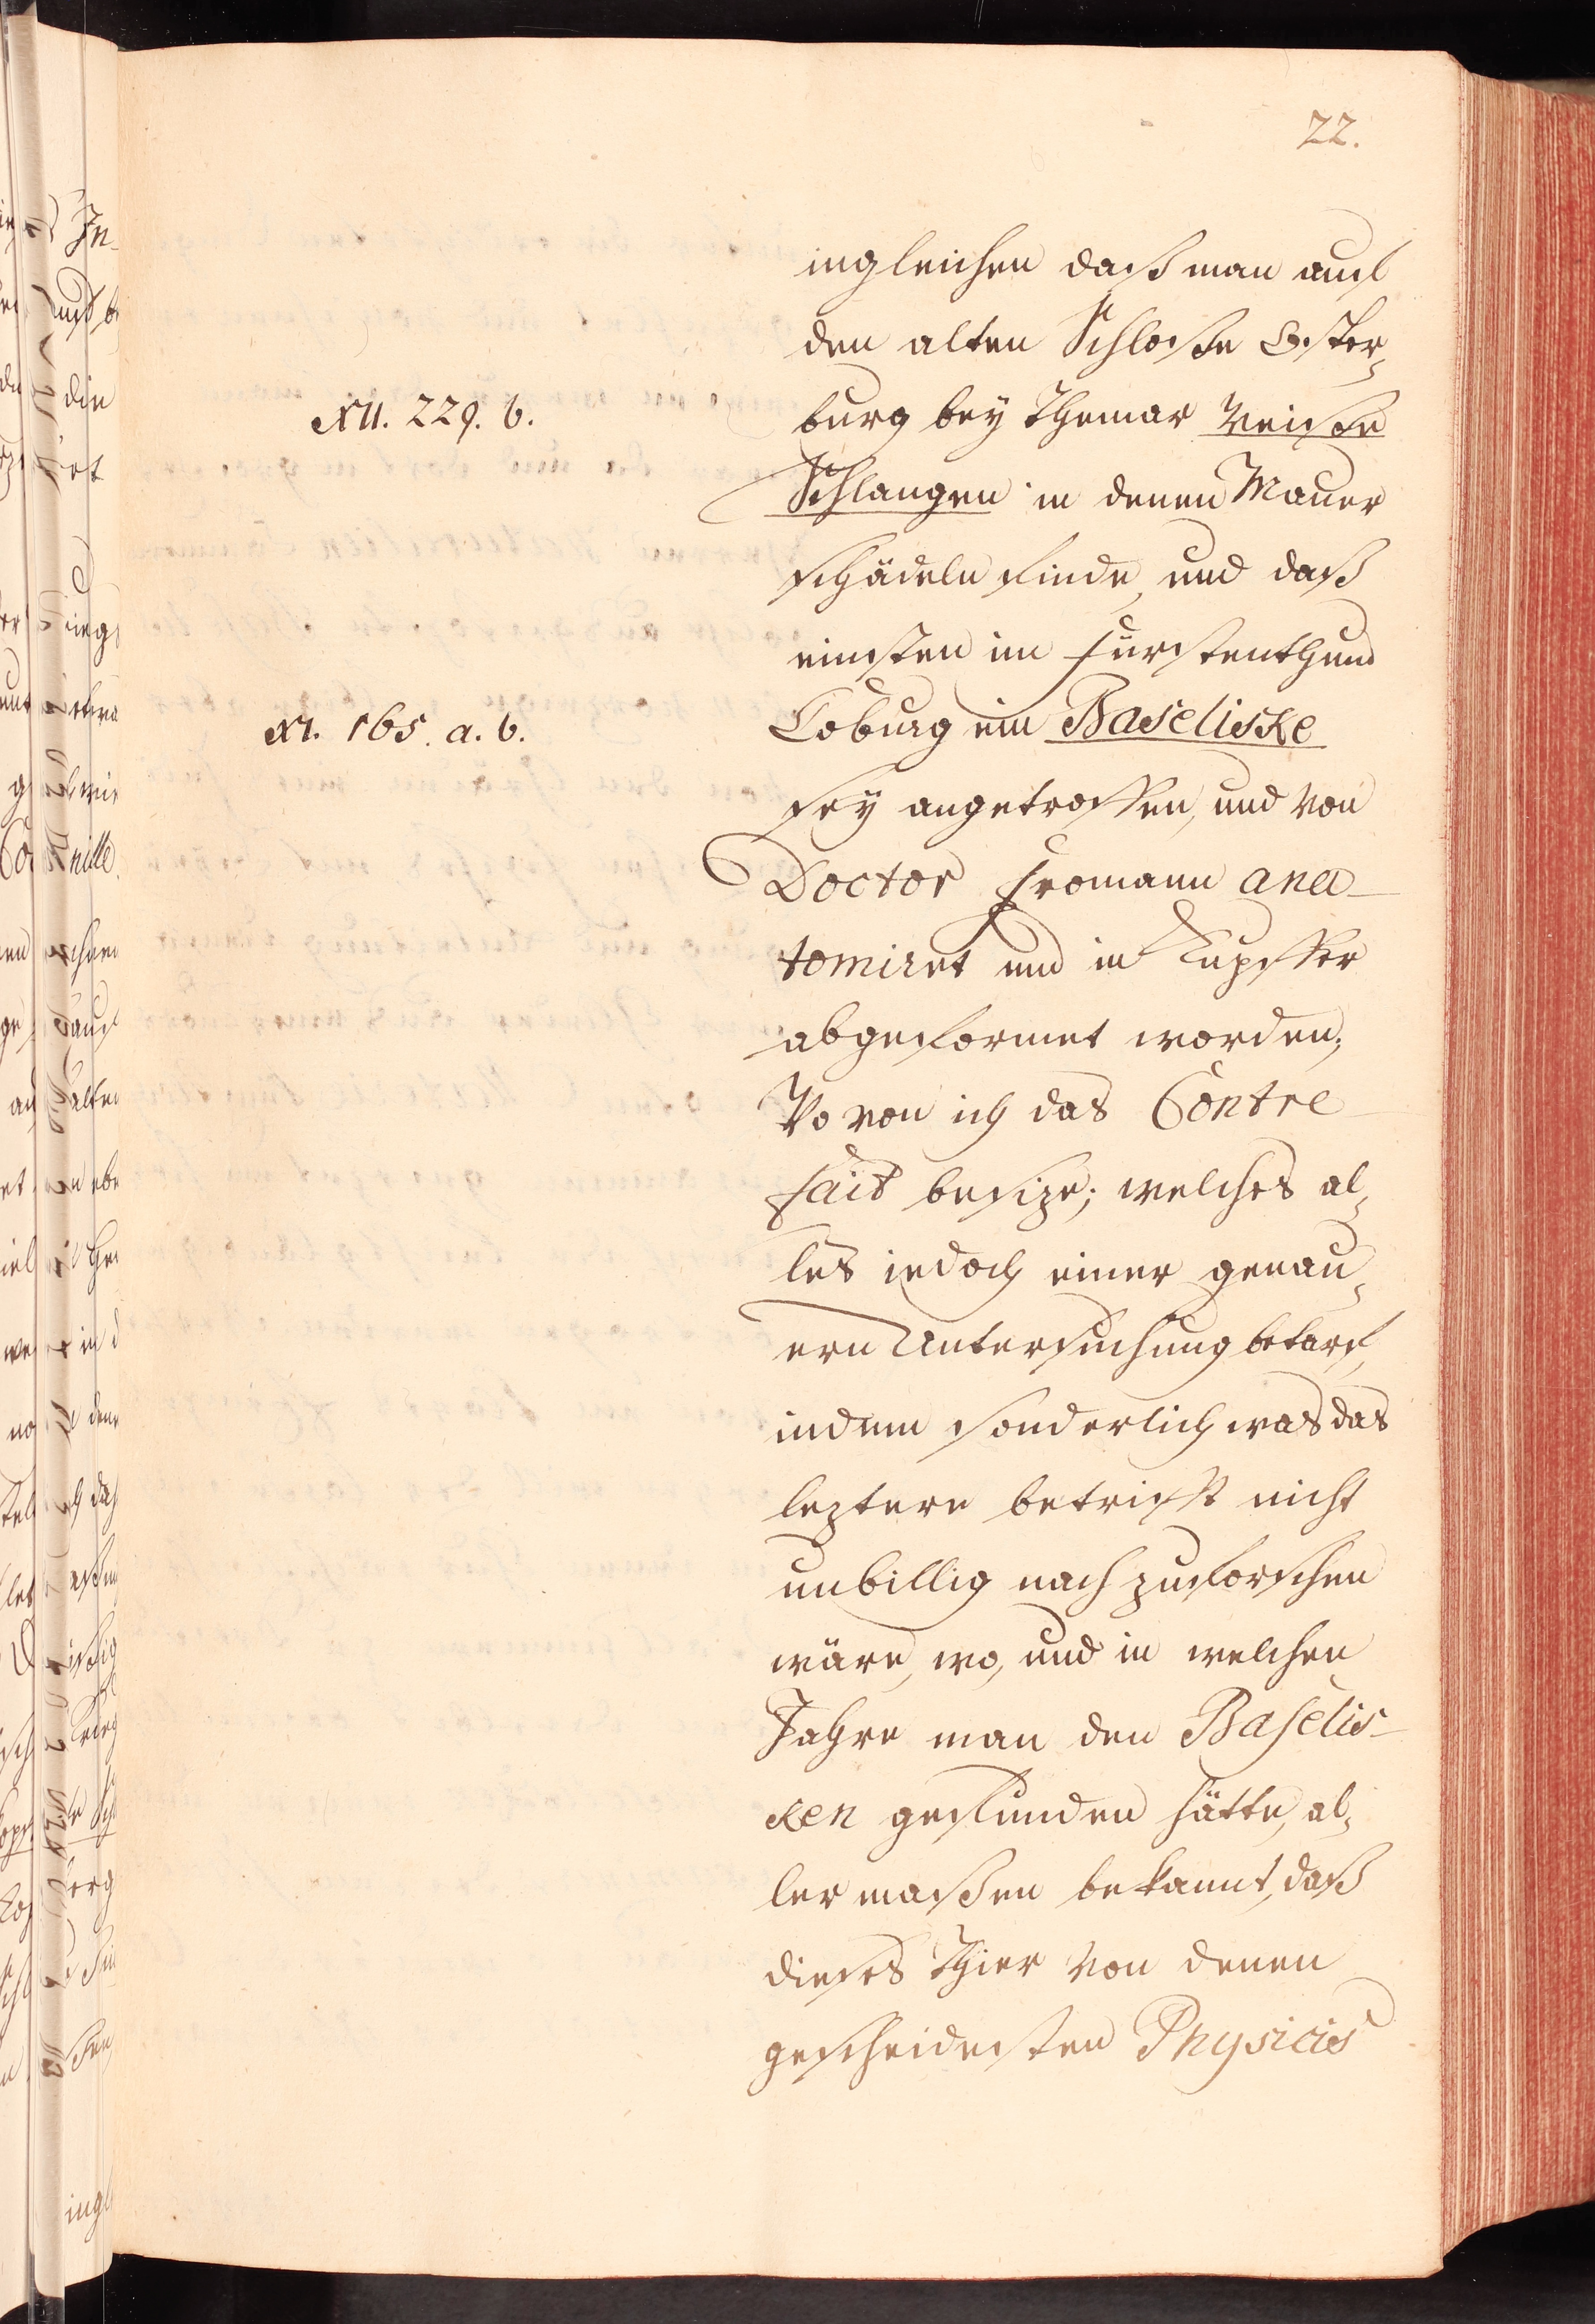 22.
ingleichen daß man auf
den alten Schloße Oster¬
XII. 229. b.
burg bey Themar Weiße
Schlangen in denen Mauer
schädeln finde, und daß
einsten im Fürstenthum
XI. 165. a. b.
Coburg ein Baseliske
sey angetroffen, und von
Doctor Fromann ana-
tomiret und in Kupffer
abgeformet worden;
Wovon ich das Contre-
fait besize; welches al¬
les iedoch einer genau¬
ern Untersuchung bedarf,
indem sonderlich was das
leztere betrifft nicht
unbillig nach zu forschen
wäre, wo, und in welchen
Jahre man den Baselis-
ken gefunden hätte, al¬
ler maßen bekannt, daß
dieses Thier von denen
gescheidesten Physicis